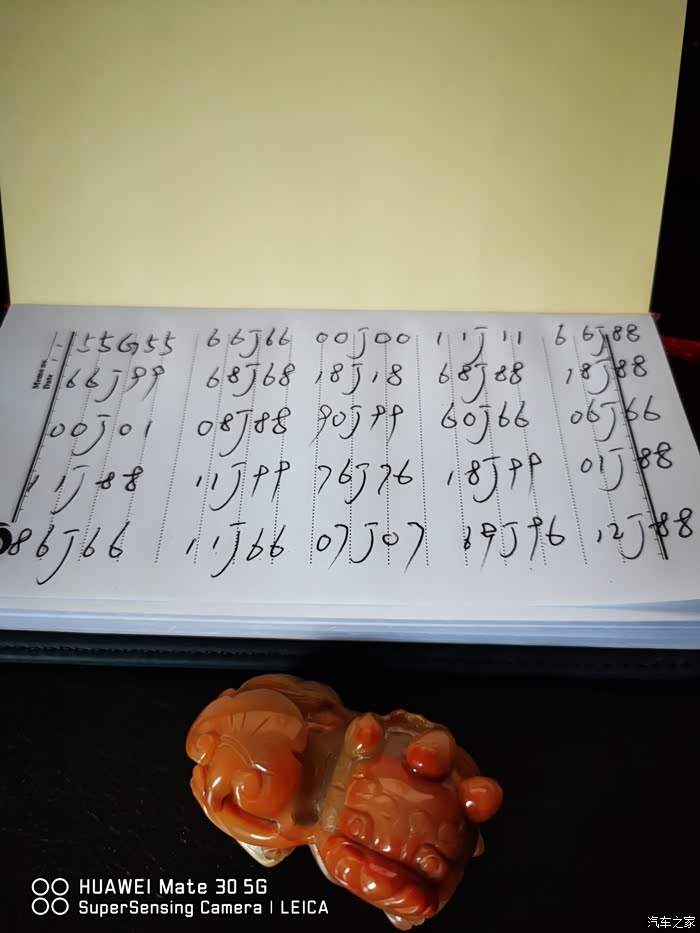 55G55 66J66 00J00 11J11 66J88
66J99 68J68 18J18 68J88 18J88
00J01 08J88 90J99 60J66 06J66
11J88 11J99 76J76 18J99 01J88
86J66 11J66 07J07 69J96 12J88
Memo No.
Date
HUAWEI Mate 30 5G
SuperSensing Camera | LEICA
汽车之家